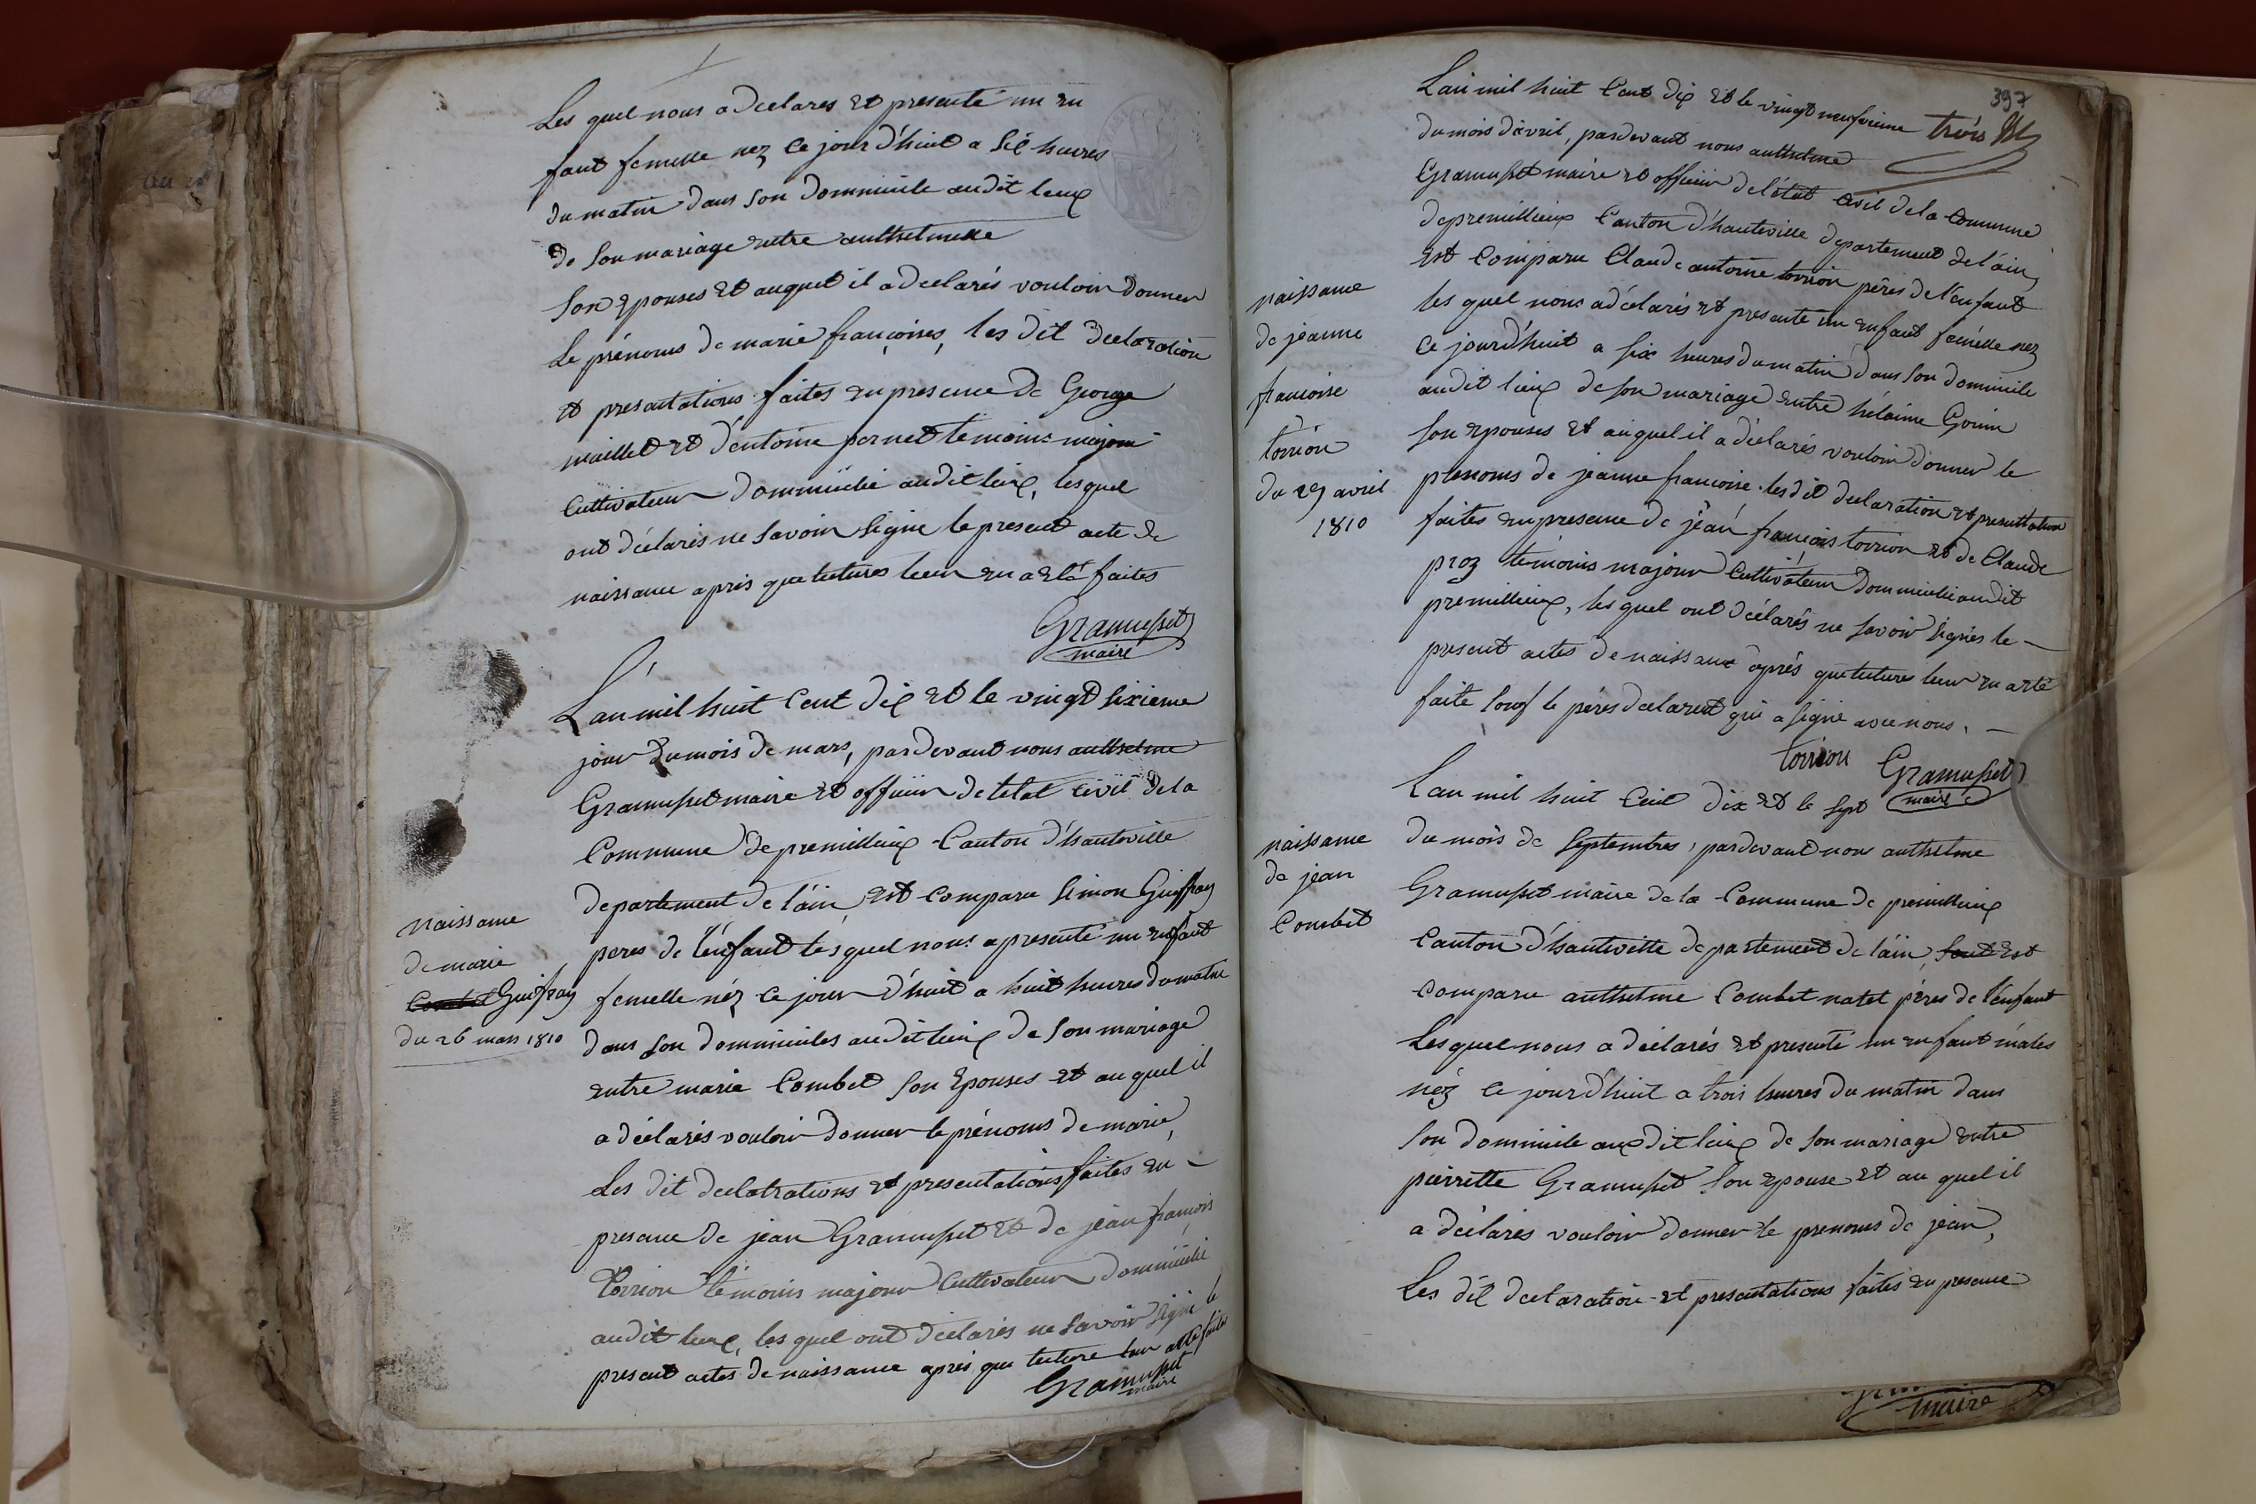 Les quel nous a declares et presenté un en
fant femelle nez ce jour d'huit a six heures
du matin dans son dommicile audit lieux
de son mariage entre anthelmette
son epouses et auquel il a declarés vouloir donner
le prénoms de marie françoises, les dit declaration
et presentations faites en presence de George
maillet et d'entoine pernet temoins majour
Cultivateur dommicilié audit lieux, lesquel
ont déclarés ne savoir signe le present acte de
naissance apris que lectures leur en a etá faites
Gramusset
maire
L'an mil huit Cent dix et le vingt sixieme
jour du mois de mars, pardevant nous anthelme
Gramusset maire et officier de l'etat civil de la
Commune de premillieux Canton d'hauteville
departement de l'ain, est comparu simon Guiffray
peres de l'enfant lesquel nous a presenté un enfant
femelle néz ce jour d'huit a huit heures du matin
dans son dommiciles audit lieux de son mariage
entre marie Combet son epouses et au quel il
a déélarés vouloir donner le prénoms de marie,
Les dit declatrations et presentations faites en
presence de jean Gramusset et de jean françois
Torrion témoins majour Cultivateur dommicilié
audit lieux, les quel ont déclarés ne savoir signé le
present actes de naissance après que lecture leur a été faites
Gramusset
maire
naissance
de marie
Combet Guiffray
du 26 mars 1810
397
L'an mil huit Cent dix et le vingt neufvieme trois
du mois d'avril, pardevant nous anthelme
Gramusset maire et officier de l'état civil de la Commune
de premillieux Canton d'hauteville departement de l'ain,
est Comparu Claude antoine torrion péres de l'enfant
les quel nous a déclarés et presenté un enfant femelle nez
ce jourd'huit a six heures du matin dans son dommicile
audit lieux de son mariage entre hélaine Gonin
son epouses et auquel il a déclarés vouloir donner le
prenoms de jeanne francoise. les dit declaration et presentation
faites en presence de jean françois torrion et de Claude
proz témoins majour Cultivateur dommicilié audit
premillieux, les quel ont déclarés ne savoir signés le
present actes de naissance après que lectures leur en a eté
faite souf le péres declarent qui a signé avec nous.
torrion Gramusset
maire
naissance
de jeanne
francoise
torrion
du 29 avril
1810
L'an mil huit Cent dix et le sept
du mois de septembres, pardevant nous anthelme
Gramusset maire de la Commune de premillieux
Canton d'hauteville departement de l'ain, sont est
comparu anthelme Combet natet péres de l'enfant
Lesquel nous a déclarés et presenté un enfant máles
néz ce jourd'huit a trois heures du matin dans
son dommicile auxdit lieux de son mariage entre
pierrette Gramusset son epouse et au quel il
a déclarés vouloir donner le prenoms de jean,
Les dit declaration et presentations faites en presence
naissance
de jean
Combet
maire